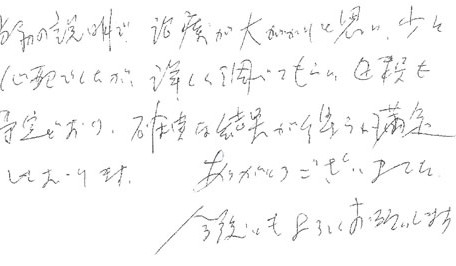 当初の説明で、治療が大がかりと思い、少々
心配でしたが、詳しく調べてもらい、日程も
予定どおり、確実な結果が得られ満足
しております。 ありがとうございました。
今後ともよろしくお願いします